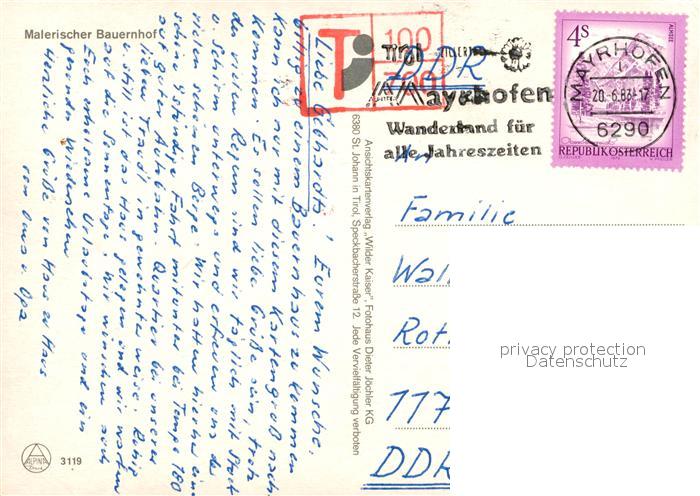 Malerischer Bauernhof
Liebe Gebhardts! Eurem Wunsche,
billigst zu einem Bauernhaus zu kommen
kann ich nur mit diesem Kartengruß nach-
kommen. Es sollen liebe Grüße sein, trotz
des vielen Regens sind wir täglich mit Stock
u. Schirm unterwegs und erfreuen uns der
vielen schönen Berge. Wir hatten hierher eine
schöne, 4stündige Fahrt mitunter bei Tempo 180
auf der Autobahn. Quartier bei unserer
lieben Traudl in gewohnter Weise. Ruhig
u. still das Haus gelegen und wir warten
auf die Sonnentage. Wir wünschen auch
Euch erholsame Urlaubstage und ein
gesundes Wiedersehen
Herzliche Grüße von Haus zu Haus
von Oma u Opa
ALPINA
3119
Ansichtskartenverlag „Wilder Kaiser", Fotohaus Dieter Jöchler KG
6380 St. Johann in Tirol, Speckbacherstraße 12. Jede Vervielfältigung verboten
T
100
700
Tirol
DDR
Mayrhofen
Wanderland für
alle Jahreszeiten
MAYRHOFEN
20.-6.83-17
6290
4S
ALMSEE
REPUBLIK ÖSTERREICH
Familie
Wal
Rot
117
DDR
privacy protection
Datenschutz